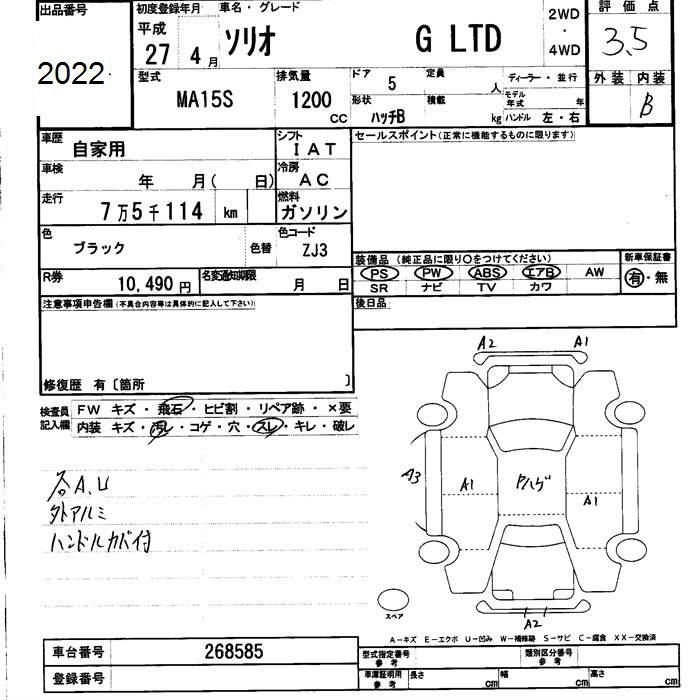 出品番号 初度登録年月 車名・グレード 2WD 評価点
平成
2022 27 4月 ソリオ G LTD ・ 3.5
4WD
型式 排気量 ドア 5 定員 人 ディーラー・並行 外装 内装
MA15S 1200 CC 形状 ハッチB 積載 kg モデル年式 年 B
ハンドル 左・右
車歴 自家用 シフト IAT セールスポイント(正常に機能するものに限ります)
車検 年 月( 日) 冷房 AC
走行 7万5千114 km 燃料 ガソリン
色 ブラック 色替 色コード ZJ3
装備品(純正品に限り○をつけてください) 新車保証書
R券 10,490円 名変通知期限 月 日 PS PW ABS エアB AW 有・無
SR ナビ TV カワ
注意事項申告欄(不具合内容等は具体的に記入して下さい) 後日品
修復歴 有〔箇所 〕
検査員記入欄 FW キズ・飛石・ヒビ割・リペア跡・×要
内装 キズ・汚レ・コゲ・穴・スレ・キレ・破レ
A2 A1
A3 A1 A1
各A、U
外アルミ
ハンドルカバ付
スペア
A2
A-キズ E-エクボ U-凹み W-補修跡 S-サビ C-腐食 XX-交換済
車台番号 268585 型式指定番号 参考 類別区分番号 参考
登録番号 車庫証明用 参考 長さ cm 幅 cm 高さ cm